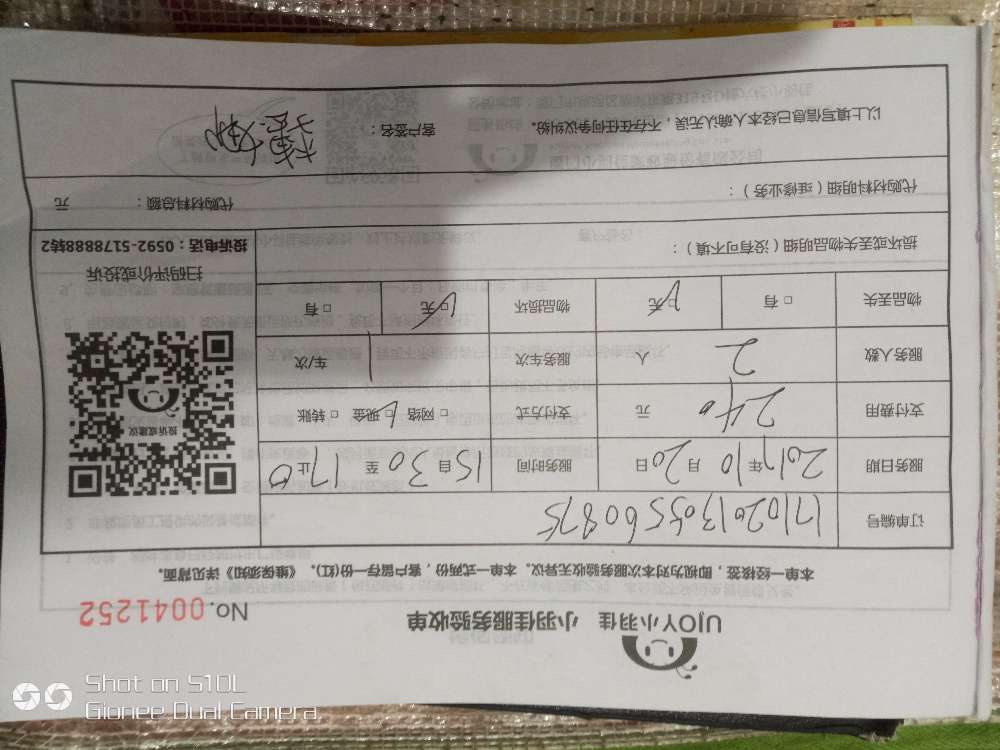 UJOY小羽佳 小羽佳服务验收单
No.0041252
本单一经核签，即视为对本次服务验收无异议。本单一式两份，客户留存一份(红)。《维保须知》详见背面。
订单编号 17102013055560875
服务日期 2017年10月20日 服务时间 15自30至17止0
支付费用 240 元 支付方式 □网络 □现金 □转账
服务人数 2 人 服务车次 1 车/次
物品丢失 □有 □无 物品损坏 □无 □有
投诉或建议
扫码评价或投诉
投诉电话：0592-5178888转2
损坏或丢失物品明细（没有可不填）：
代购材料明细（维修业务）：
代购材料总额： 元
以上填写信息已经本人确认无误，不存在任何争议纠纷。 客户签名：
Shot on S10L
Gionee Dual Camera